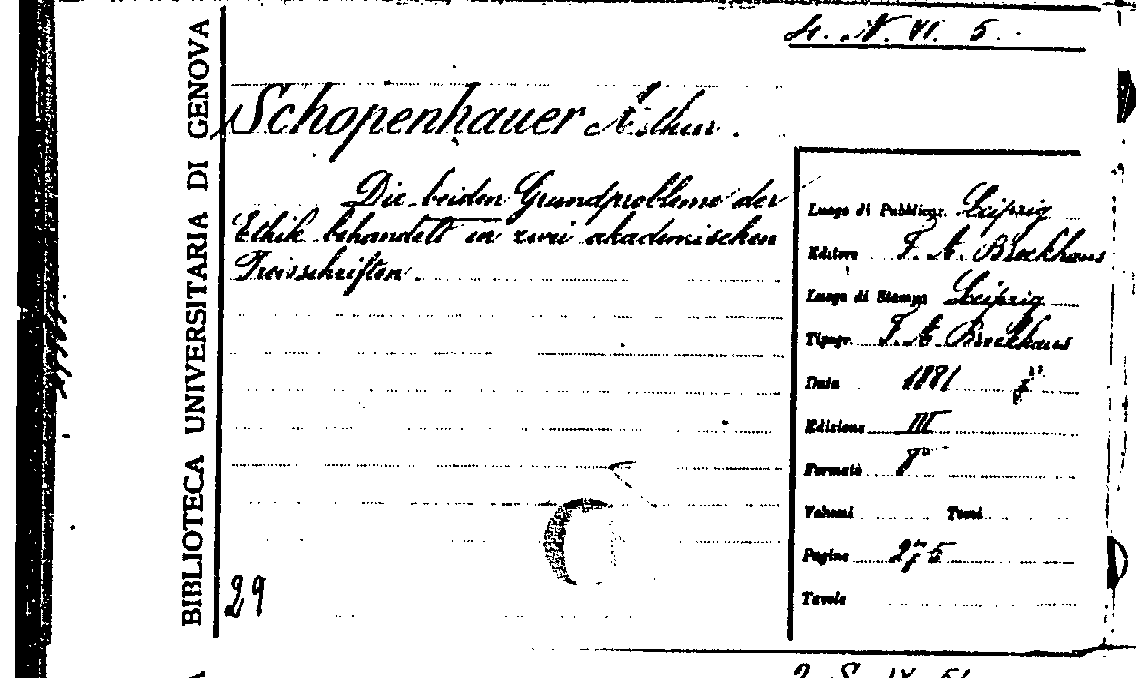 4. N. VI. 5.
BIBLIOTECA UNIVERSITARIA DI GENOVA
Schopenhauer Arthur.
Die beiden Grundprobleme der
Ethik behandelt in zwei akademischen
Preisschriften.
29
Luogo di Pubblicaz. Leipzig
Editore F. A. Brockhaus
Luogo di Stampa Leipzig
Tipogr. F. A. Brockhaus
Data 1881
Edizione III
Formato 8°
Volumi Tomi
Pagine 275
Tavole